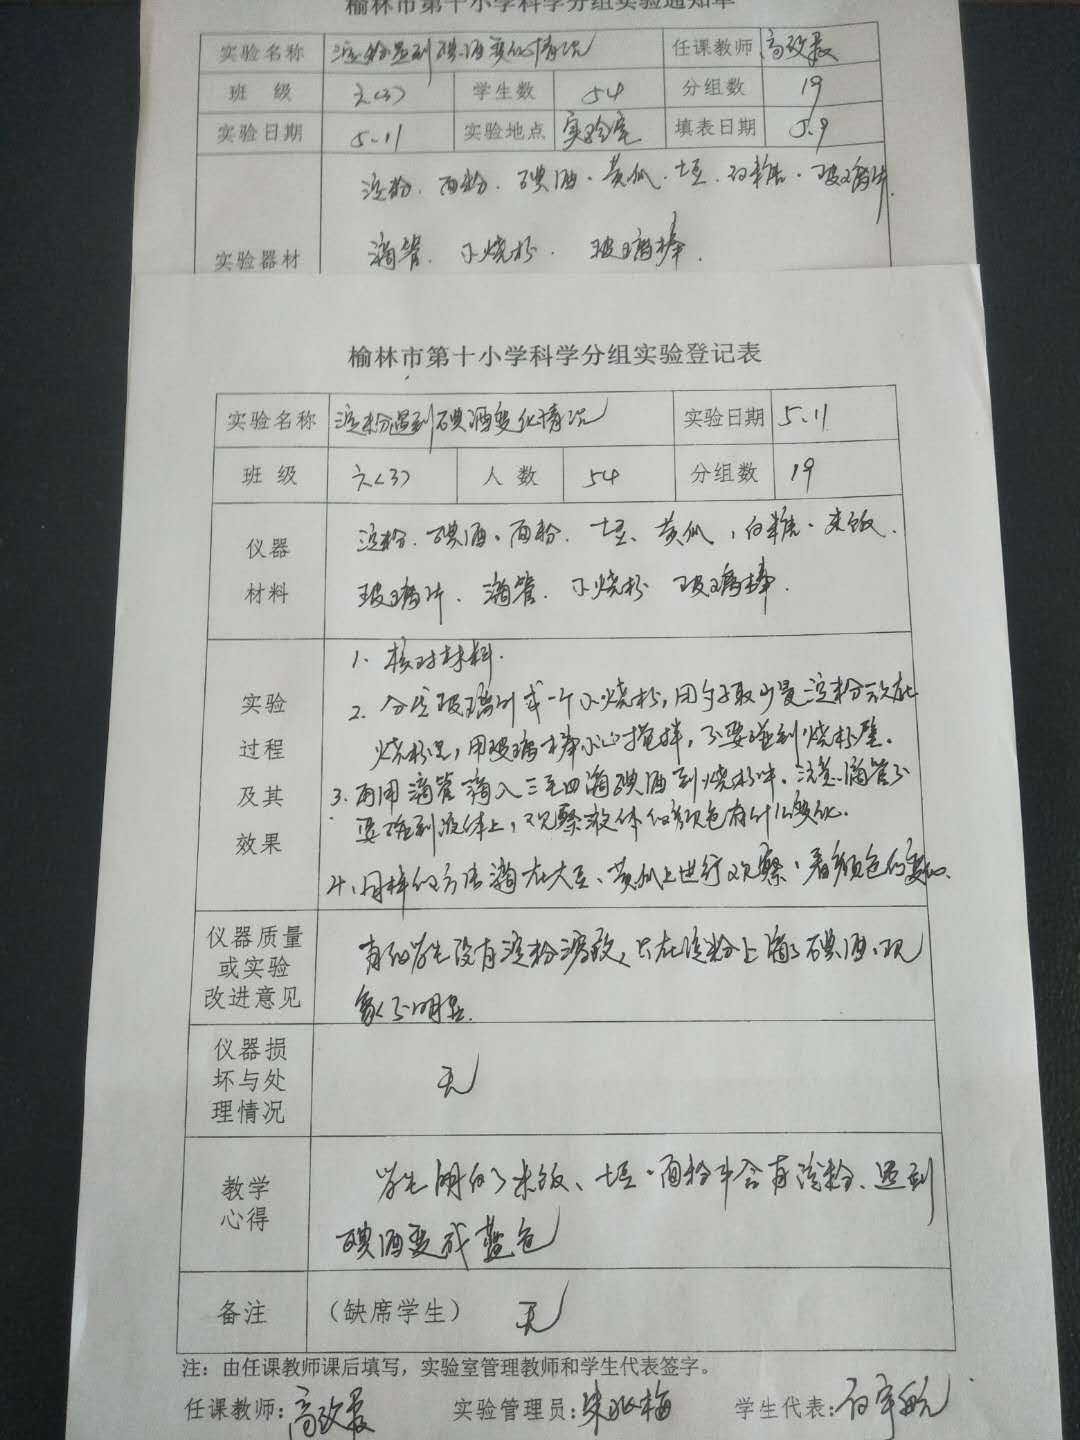 榆林市第十小学科学分组实验通知单
实验名称 淀粉遇到碘酒变化情况 任课教师
班 级 六(3) 学生数 54 分组数 19
实验日期 5.11 实验地点 实验室 填表日期 5.9
淀粉. 面粉. 碘酒. 黄瓜. 土豆. 白糖. 玻璃片.
实验器材 滴管. 小烧杯. 玻璃棒.
榆林市第十小学科学分组实验登记表
实验名称 淀粉遇到碘酒变化情况 实验日期 5.11
班 级 六(3) 人 数 54 分组数 19
仪器 淀粉. 碘酒. 面粉. 土豆. 黄瓜, 白糖. 米饭.
材料 玻璃片. 滴管. 小烧杯 玻璃棒.
1. 核对材料.
实验 2. 分发玻璃片或一个小烧杯, 用勺子取少量淀粉放在
过程 烧杯里, 用玻璃棒小心搅拌, 不要碰到烧杯壁.
及其 3. 再用滴管滴入三至四滴碘酒到烧杯中. 注意滴管不
要碰到液体上, 观察液体的颜色有什么变化.
效果
4. 同样的方法滴在大豆、黄瓜上进行观察, 看颜色的变化.
仪器质量 有的学生没有淀粉溶液, 只在淀粉上滴了碘酒, 现
或实验
改进意见 象不明显.
仪器损
坏与处 无
理情况
教学 学生明白了米饭、土豆、面粉中含有淀粉. 遇到
心得 碘酒变成蓝色
备注 (缺席学生) 无
注: 由任课教师课后填写, 实验室管理教师和学生代表签字。
任课教师: 实验管理员: 学生代表: